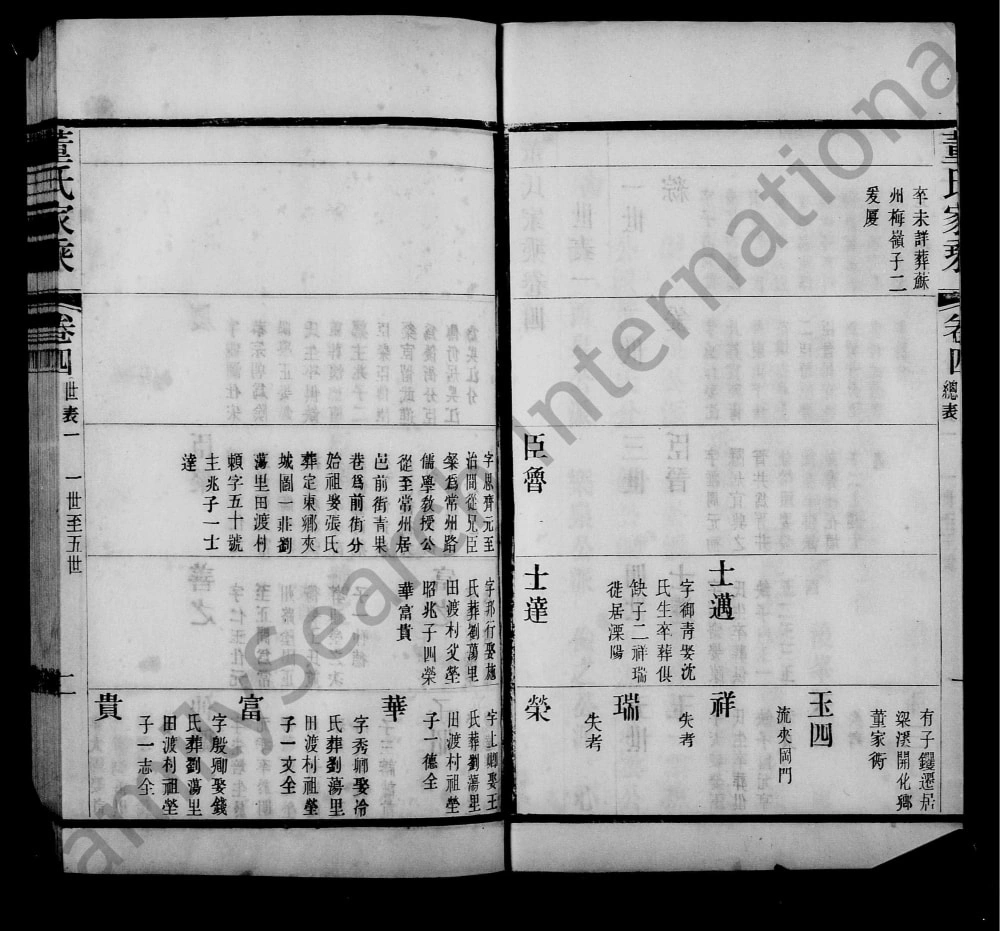 董氏家乘
卷四
總表
卒未詳葬蘇
州梅嶺子二
爰厦
臣魯
士邁
字御靑娶沈
氏生卒葬俱
缺子二祥瑞
徙居溧陽
士達
有子钁遷居
梁溪開化鄉
董家衖
玉四
流夾岡門
祥
失考
瑞
失考
榮
字思齊元至
治間從兄臣
粲爲常州路
儒學教授公
從至常州居
邑前街靑果
巷爲前街分
始祖娶張氏
葬定東鄉夾
城圖一莊劉
蕩里田渡村
賴字五十號
主兆子一士
達
字邦行娶施
氏葬劉蕩里
田渡村父塋
昭兆子四榮
華富貴
字上卿娶王
氏葬劉蕩里
田渡村祖塋
子一德全
華
字秀卿娶冷
氏葬劉蕩里
田渡村祖塋
子一文全
富
字殷卿娶錢
氏葬劉蕩里
田渡村祖塋
子一志全
貴
董氏家乘
卷四
世表一
一世至五世
FamilySearch International